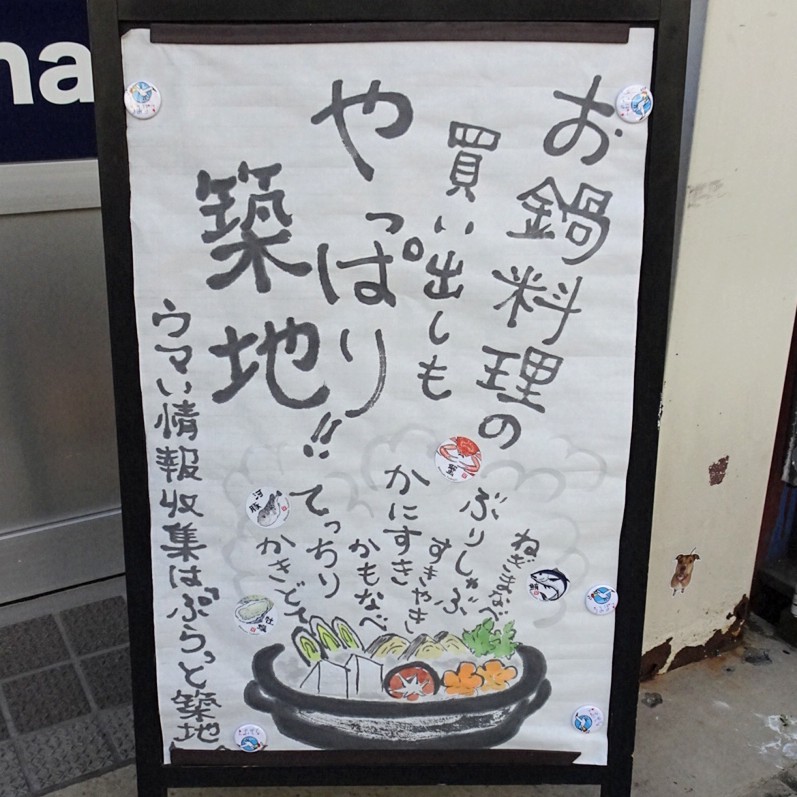 お鍋料理の
買い出しも
やっぱり
築地!!
ねぎまなべ
ぶりしゃぶ
すきやき
かにすき
かもなべ
てっちり
かきどて
ウマい情報収集はぷらっと築地
蟹
河豚
牡蠣
鮪
na